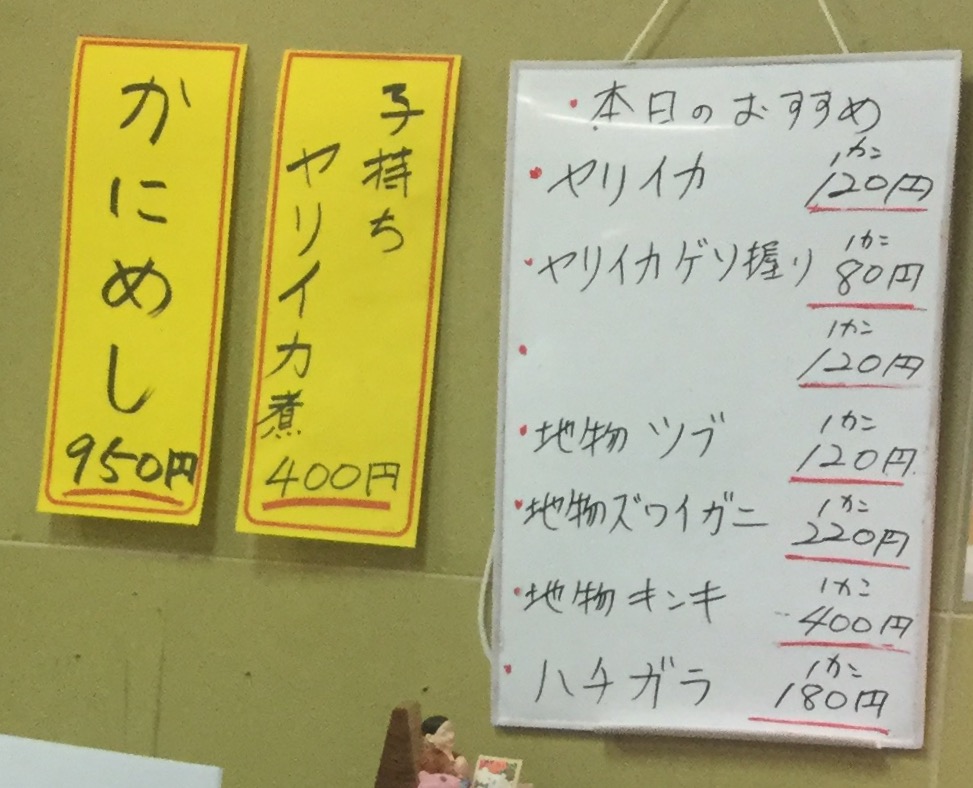 かにめし
950円
子持ち
ヤリイカ煮
400円
・本日のおすすめ
・ヤリイカ 1カン 120円
・ヤリイカゲソ握り 1カン 80円
・ 1カン 120円
・地物ツブ 1カン 120円
・地物ズワイガニ 1カン 220円
・地物キンキ 1カン 400円
・ハチガラ 1カン 180円